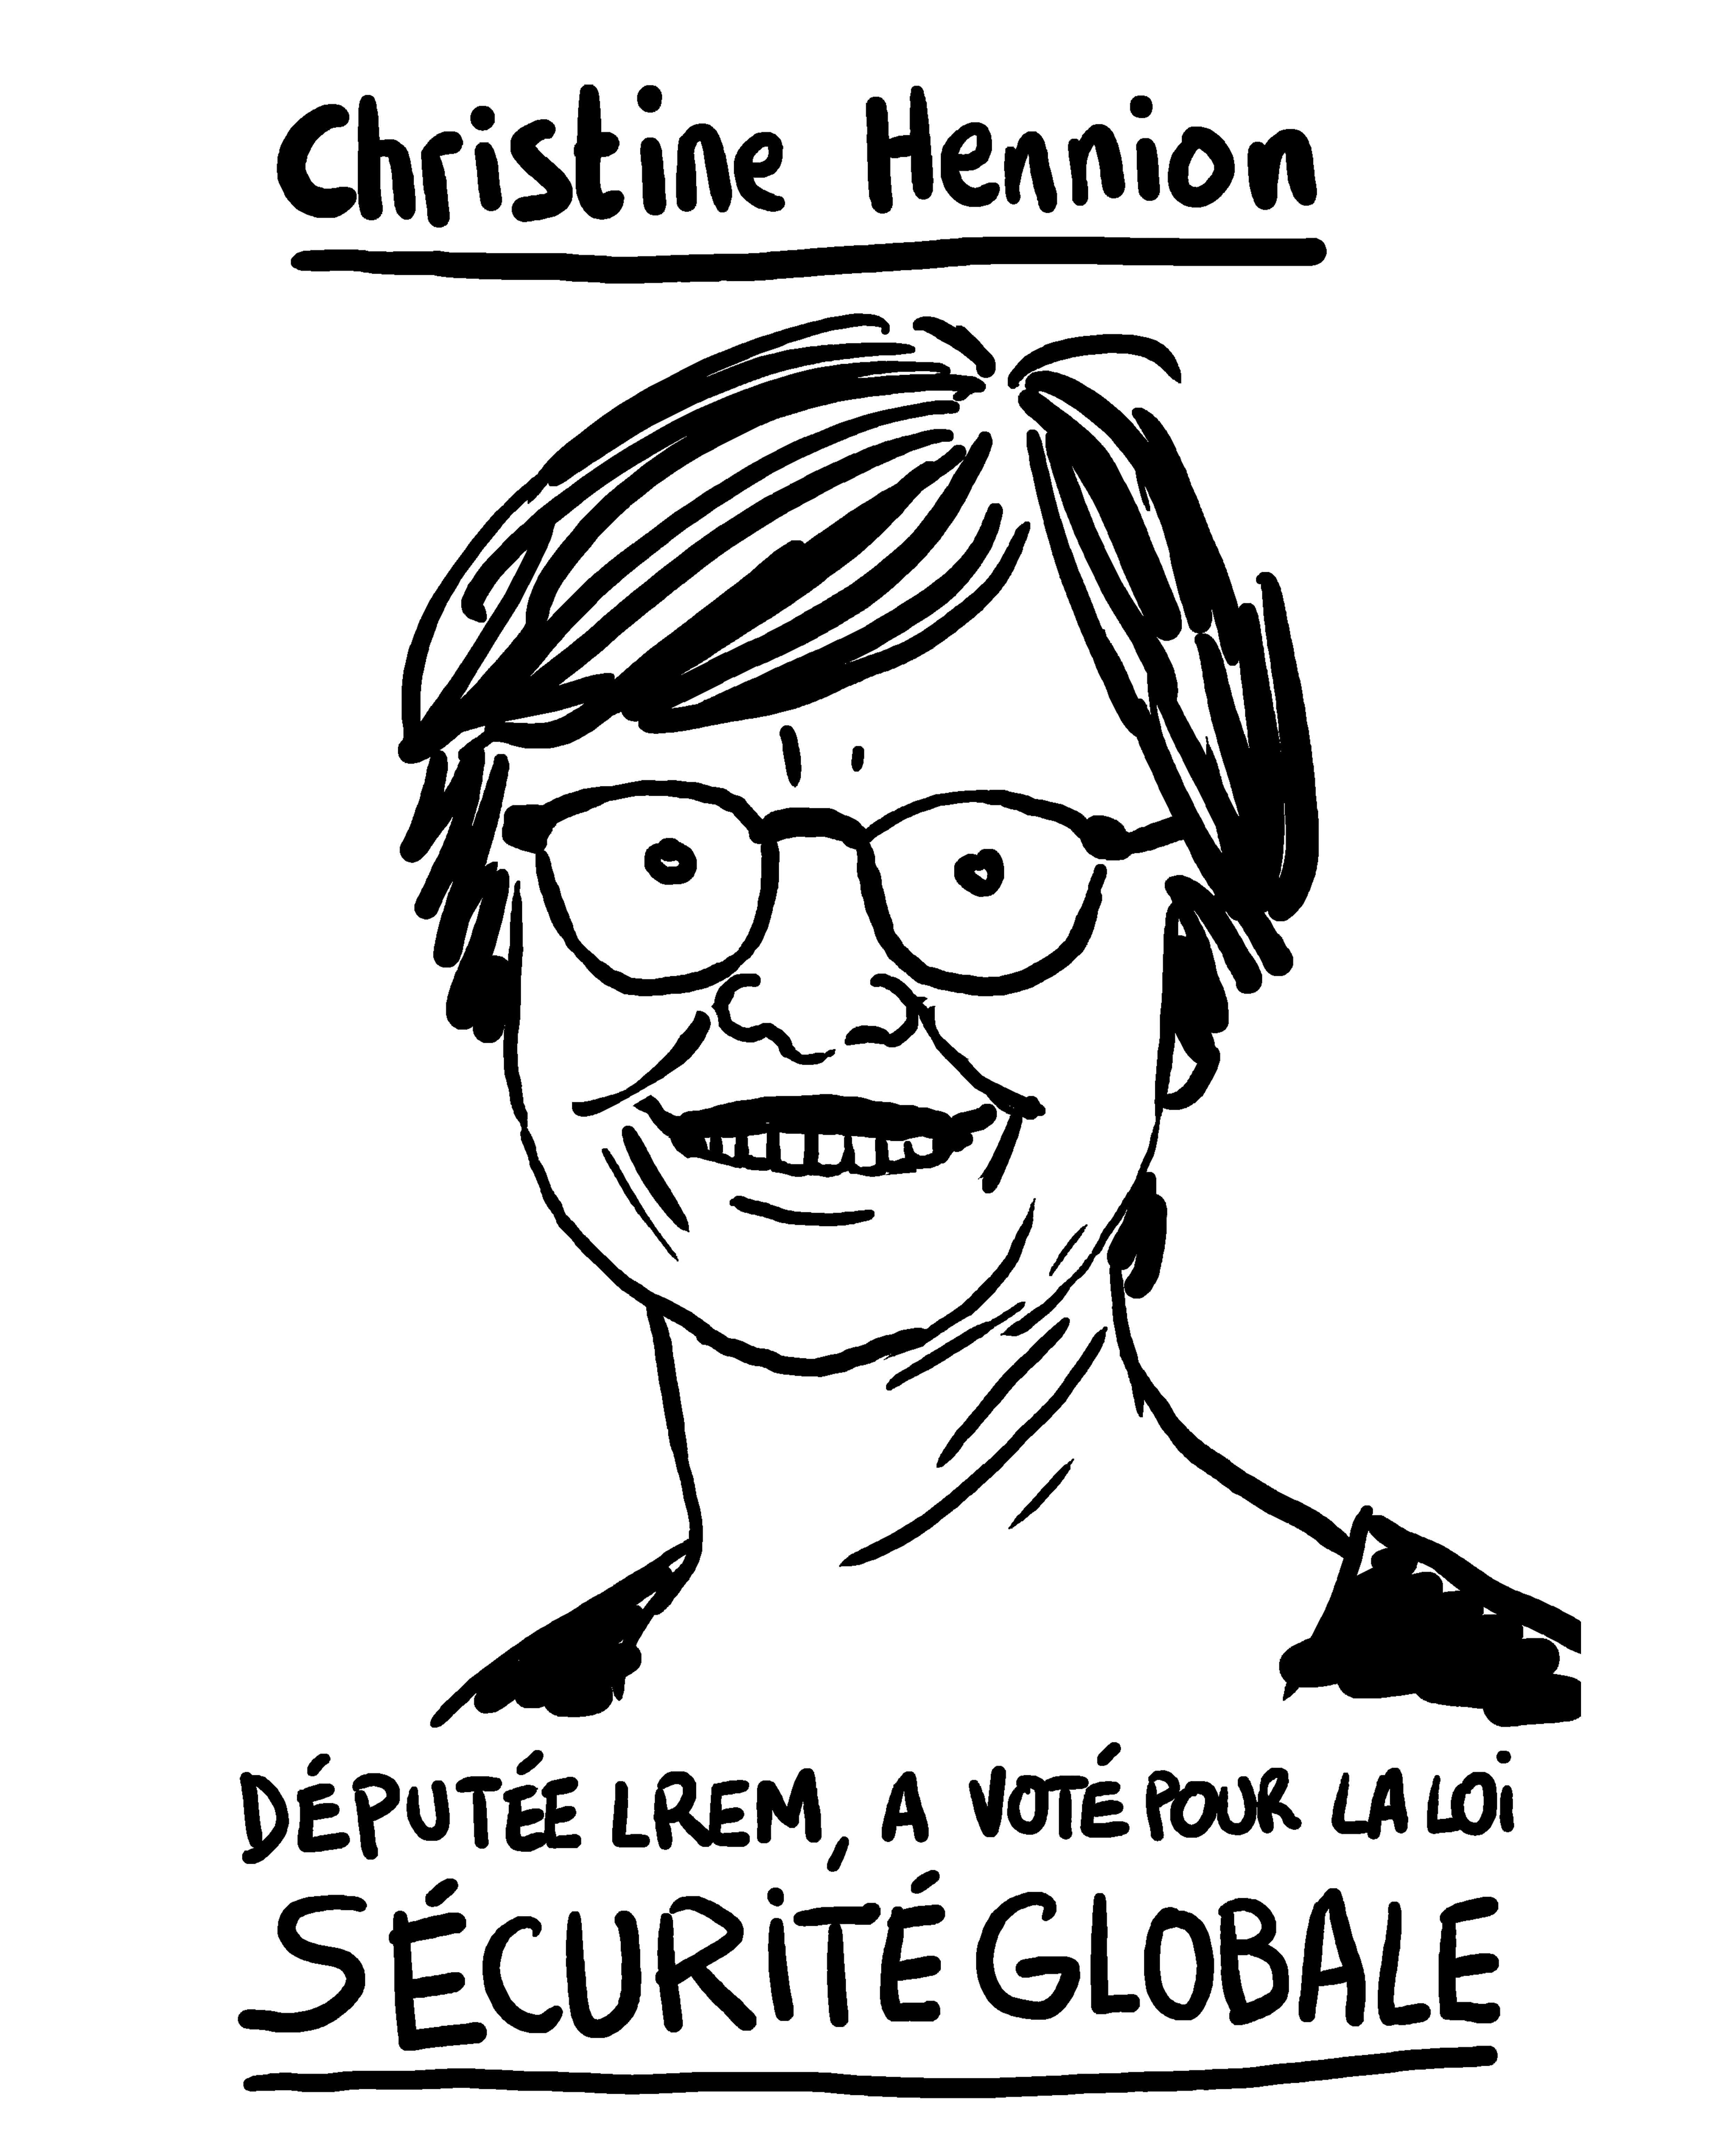 Christine Hennion
DÉPUTÉE LREM, A VOTÉ POUR LA LOi
SÉCURiTÉ GLOBALE